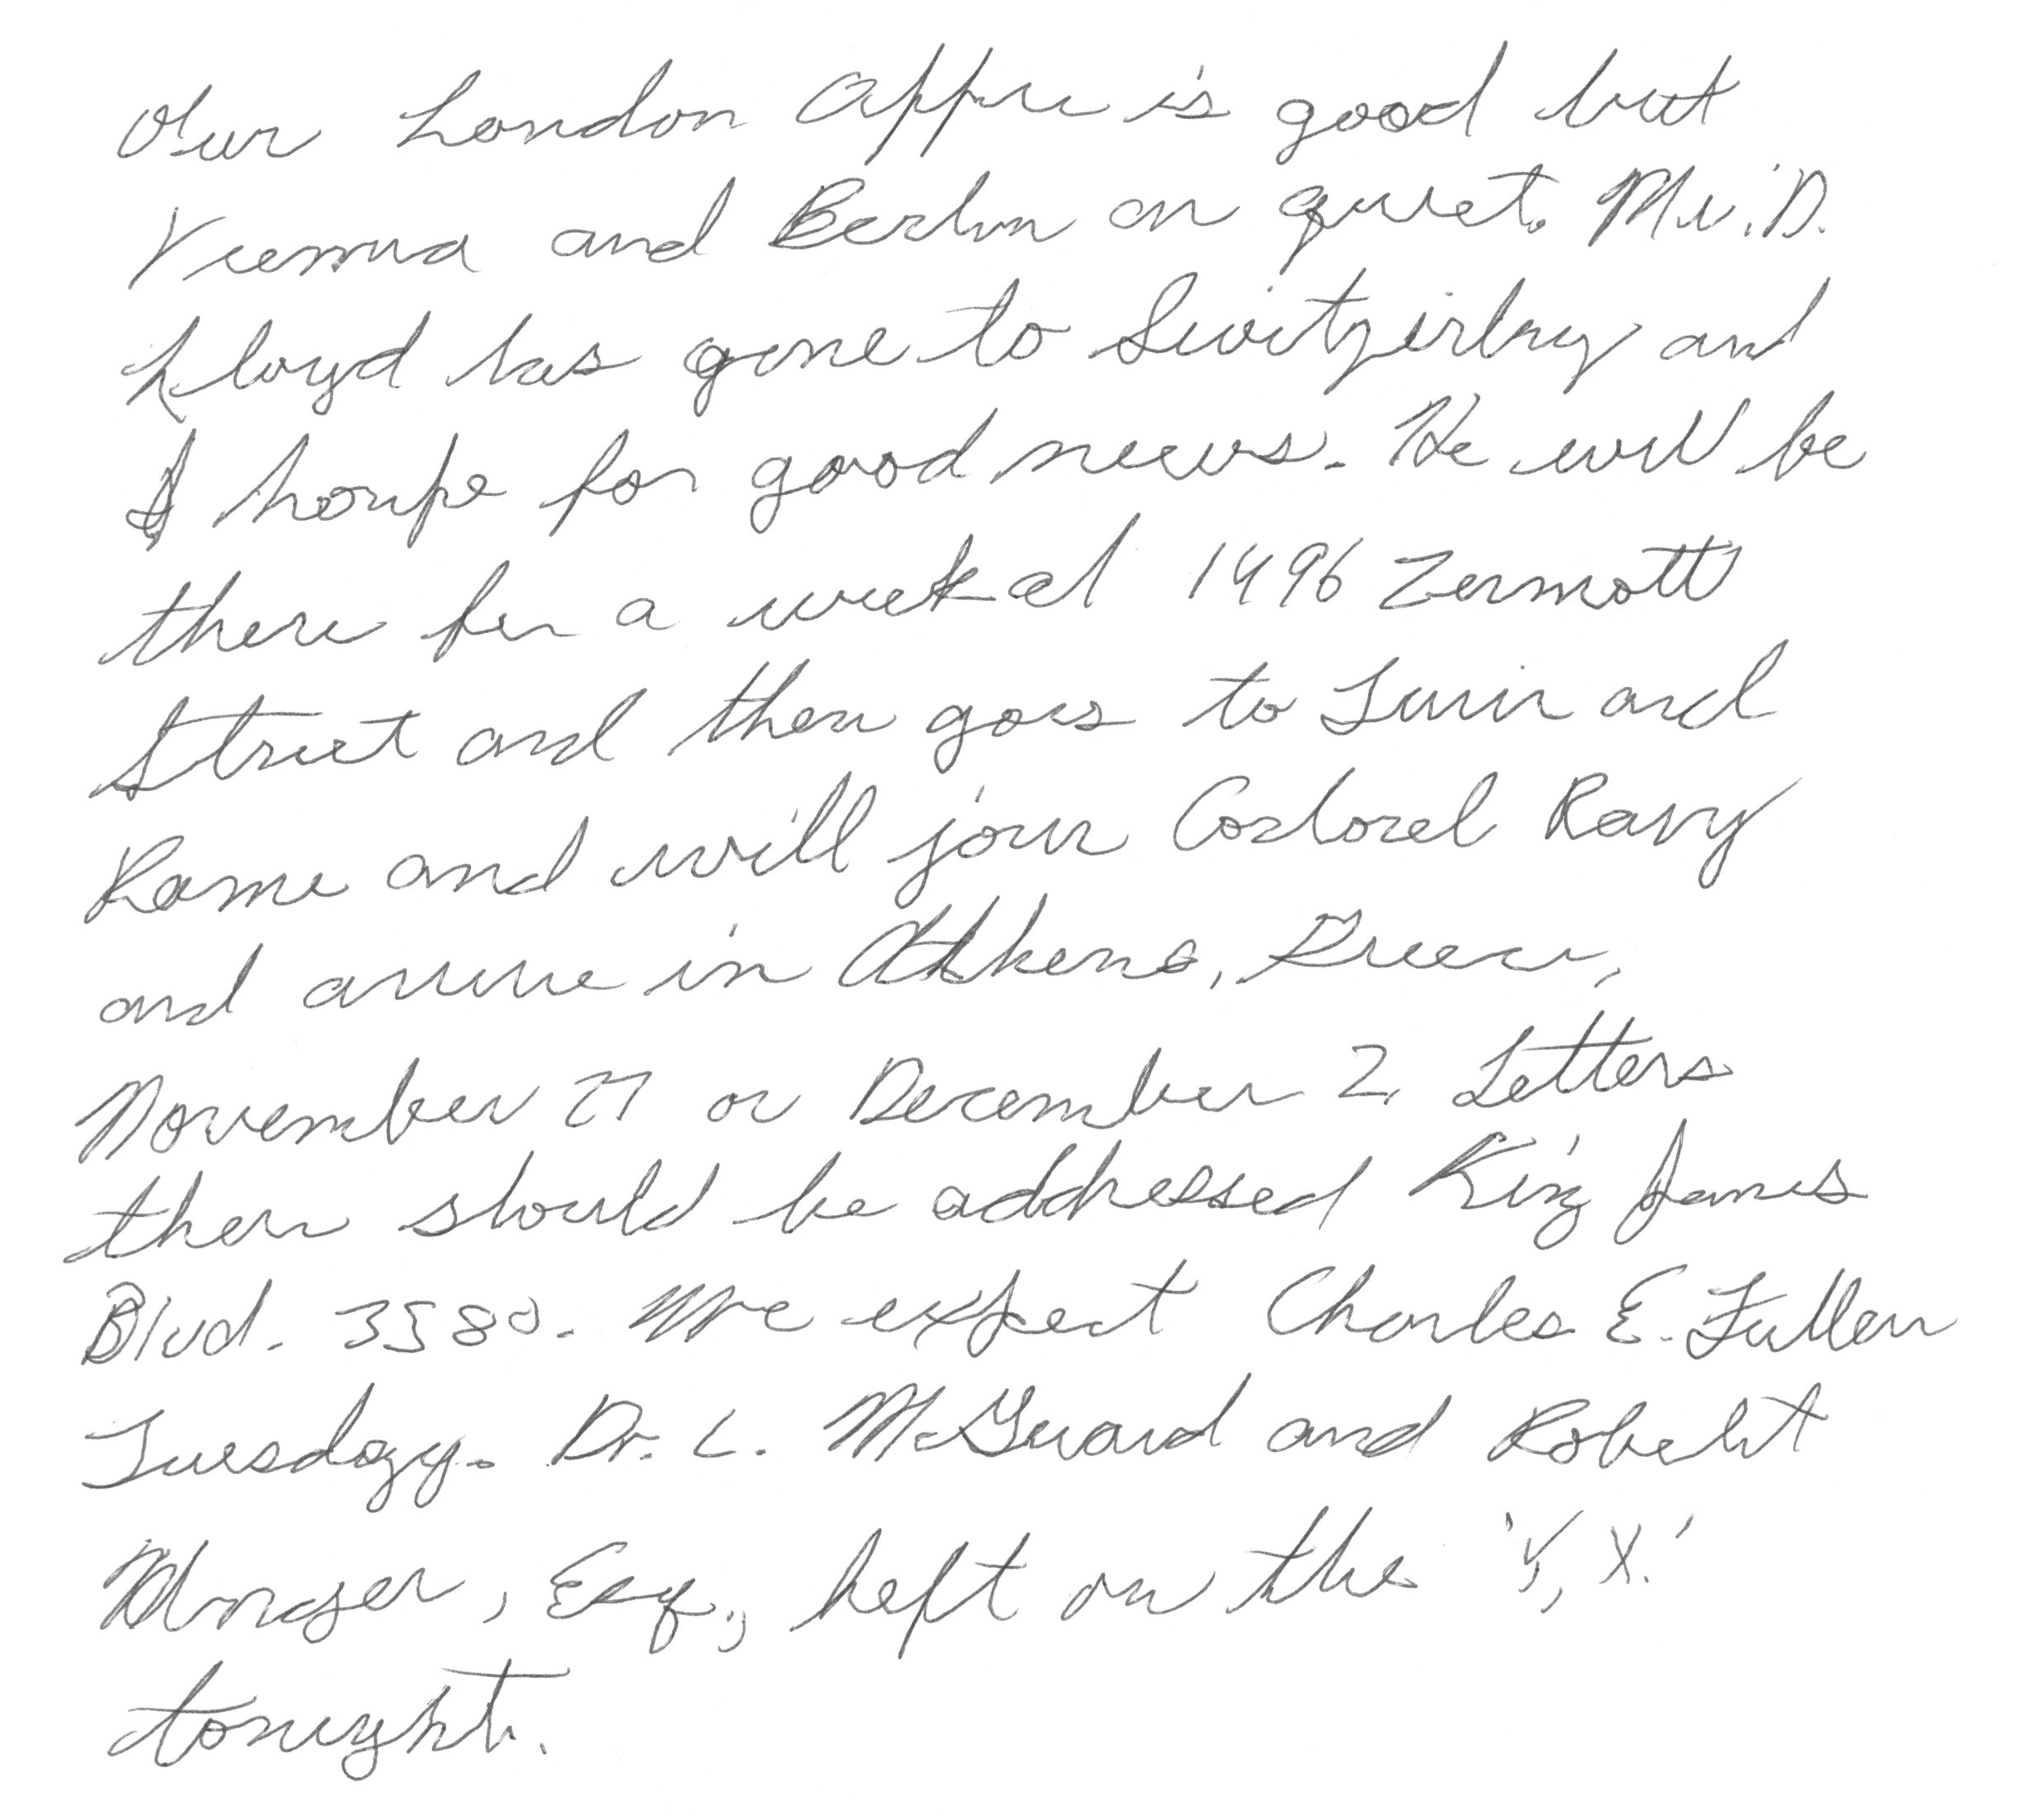 Our London Appre is good but
Vienna and Berlin on quiet. Mr. D.
Lloyd has gone to Switzirlny and
I houpe for good news. He will be
there for a week at 1496 Zermott
Street and then goes to Turin and
Rome and will join Corlorel Ravy
and arrive in Athens, Greece,
November 27 or December 2. Letters
there should be addressed King James
Blvd. 3580. We expect Charles E. Fuller
Tuesday. Dr. L. McGuard and Robert
Unger, Esq., left on the 'Y, X.'
tonight.